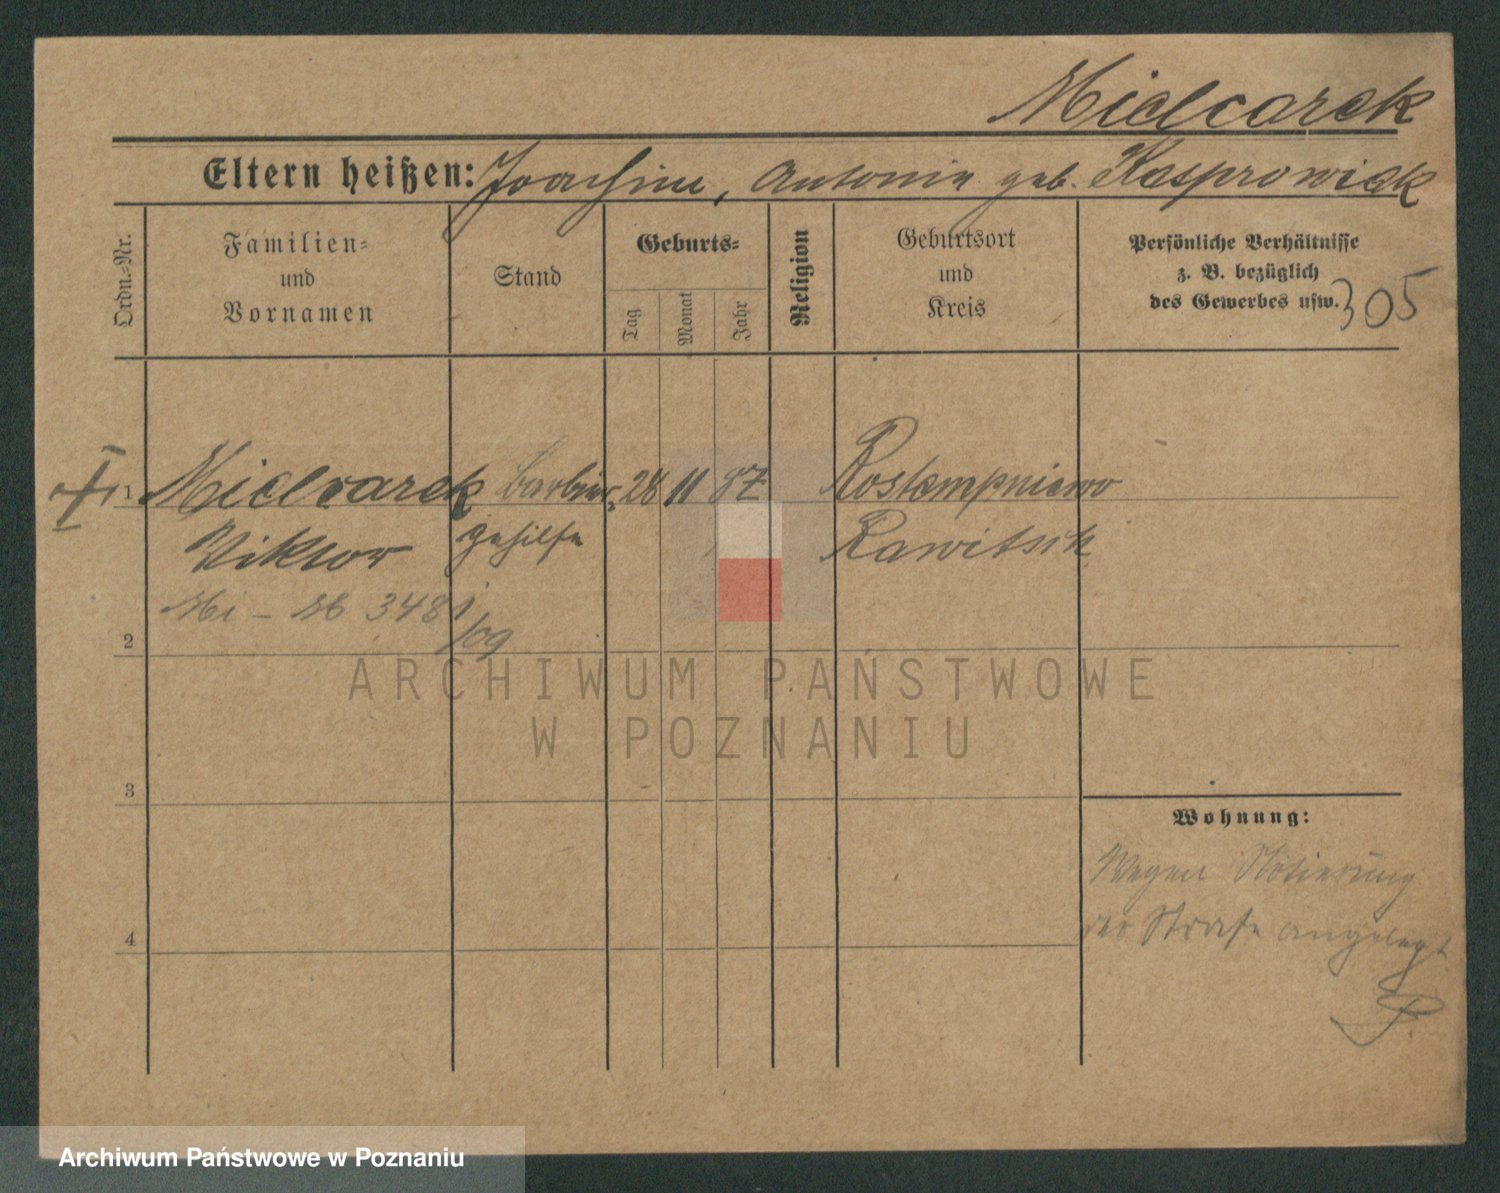 Mielcarek
Eltern heißen: Joachim, Antonin geb. Kasprowiak
Ordn.-Nr.
Familien-
und
Vornamen
Stand
Geburts-
Tag
Monat
Jahr
Religion
Geburtsort
und
Kreis
Persönliche Verhältnisse
z. B. bezüglich
des Gewerbes usw.
305
1 Mielcarek Barbier- 28 11 87 Rostempniewo
Viktor gehilfe Rawitsch
3481
/09
2
3
4
Wohnung:
Wegen Notierung
der Strafe angelegt
ARCHIWUM PAŃSTWOWE
W POZNANIU
Archiwum Państwowe w Poznaniu